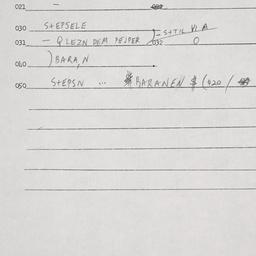 021 –
030 STEPSELE
031 – QLEZN DEM PEJPER ]= STTIL VIA
032 O
040 ) BARA,N
050 STEPSN ... BARANEN $ (020 /